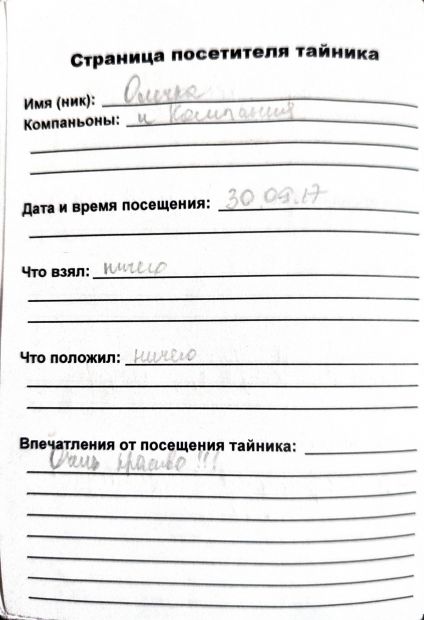 Страница посетителя тайника
Имя (ник): Олечка
Компаньоны: и Компания
Дата и время посещения: 30.09.17
Что взял: ничего
Что положил: ничего
Впечатления от посещения тайника:
Очень красиво !!!